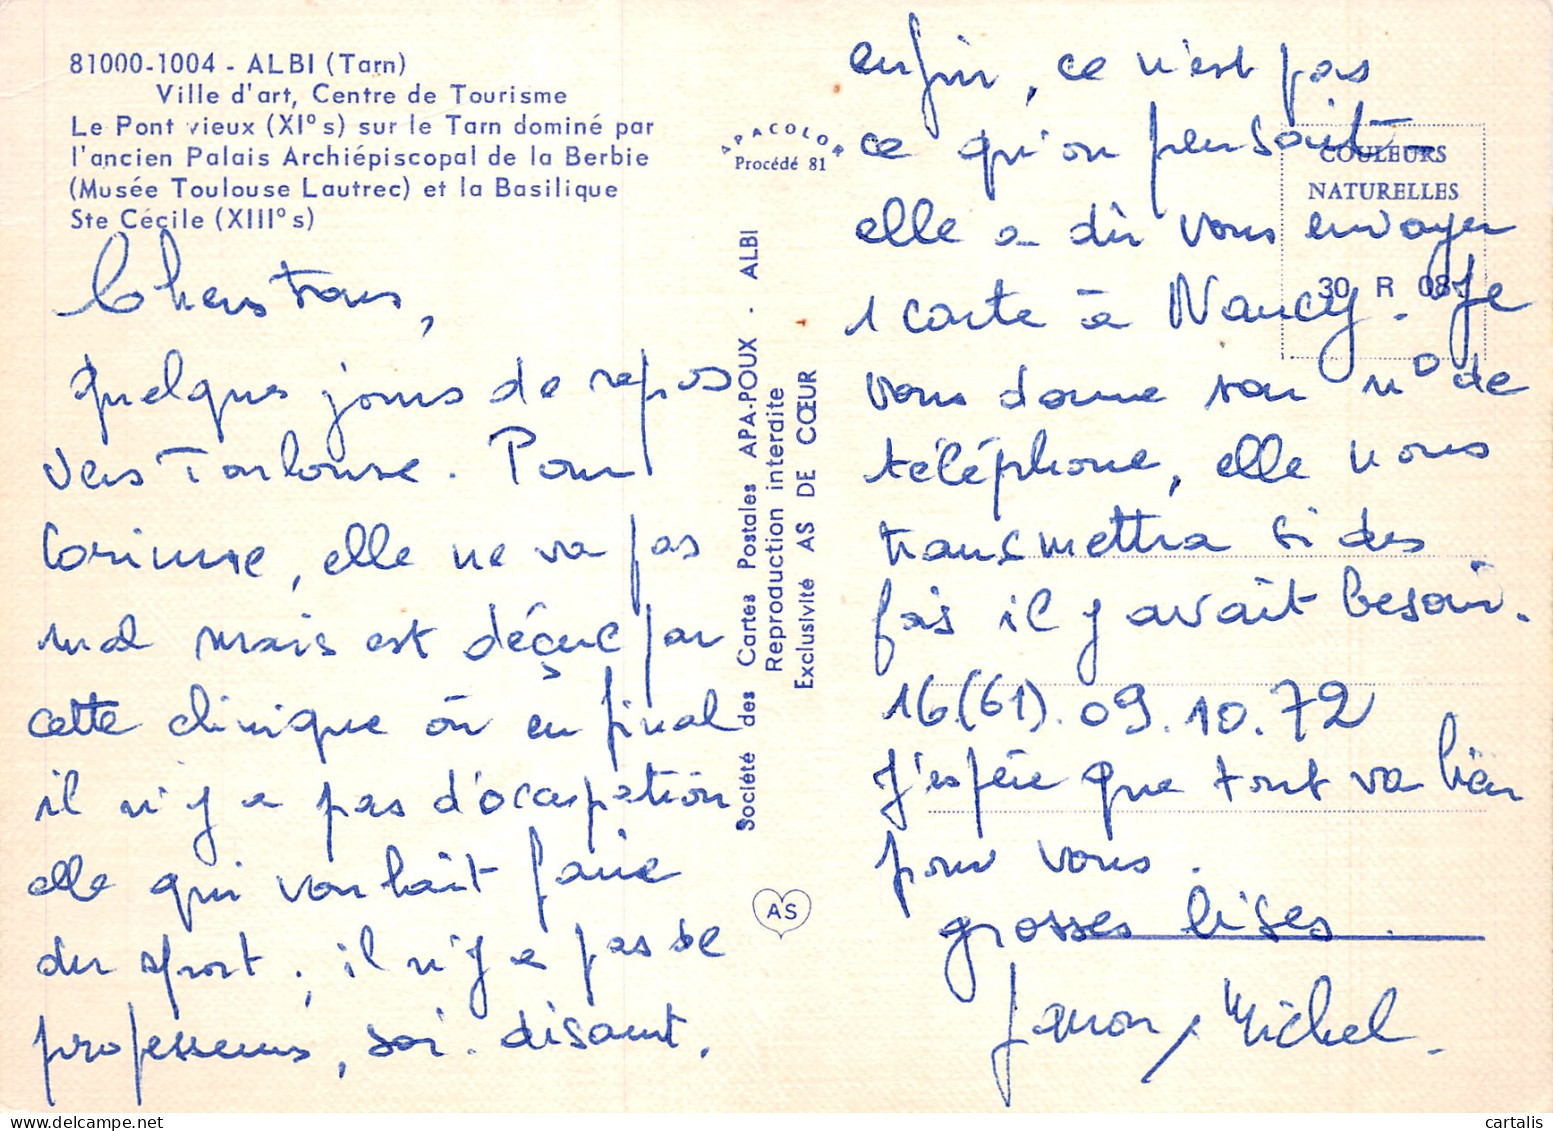 81000-1004 - ALBI (Tarn)
Ville d'art, Centre de Tourisme
Le Pont vieux (XI° s) sur le Tarn dominé par
l'ancien Palais Archiépiscopal de la Berbie
(Musée Toulouse Lautrec) et la Basilique
Ste Cécile (XIII° s)
Chers tous,
quelques jours de repos
vers Toulouse. Pour
Corinne, elle ne va pas
mal mais est déçue par
cette clinique où en final
il n'y a pas d'occupation,
elle qui voulait faire
du sport, il n'y a pas de
professeurs, soi-disant.
APACOLOR
Procédé 81
Société des Cartes Postales APA-POUX - ALBI
Reproduction interdite
Exclusivité AS DE CŒUR
AS
COULEURS
NATURELLES
30 R 08
enfin, ce n'est pas
ce qu'on pensait -
elle a dû vous envoyer
1 carte à Nancy. Je
vous donne son n° de
téléphone, elle nous
transmettra si des
fois il y avait besoin.
16 (61). 09. 10. 72
J'espère que tout va bien
pour vous.
grosses bises.
Michel.
cartalis